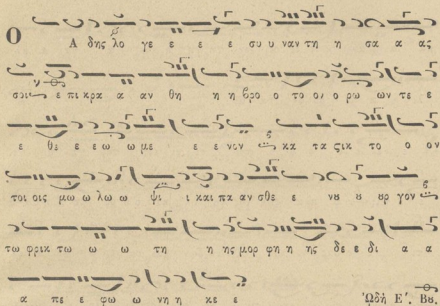 Ο Α δης λο γε ε ε ε συ υ ναν τη η σα α ας
σοι ε πι κρα α αν θη η η βρο ο το ον ο ρω ων τε ε
ε θε ε εω ω με ε ε νον κα τα ζικ το ο ον
τοι οις μω ω λω ω ψι ι και πα αν σθε ε νȣ ȣ ȣρ γον
τω φρικ τω ω ω τη η ης μορ φη η ης δε ε δι α α
α πε ε φω ω νη η κε ε Ὠδὴ Εʹ. Βȣ